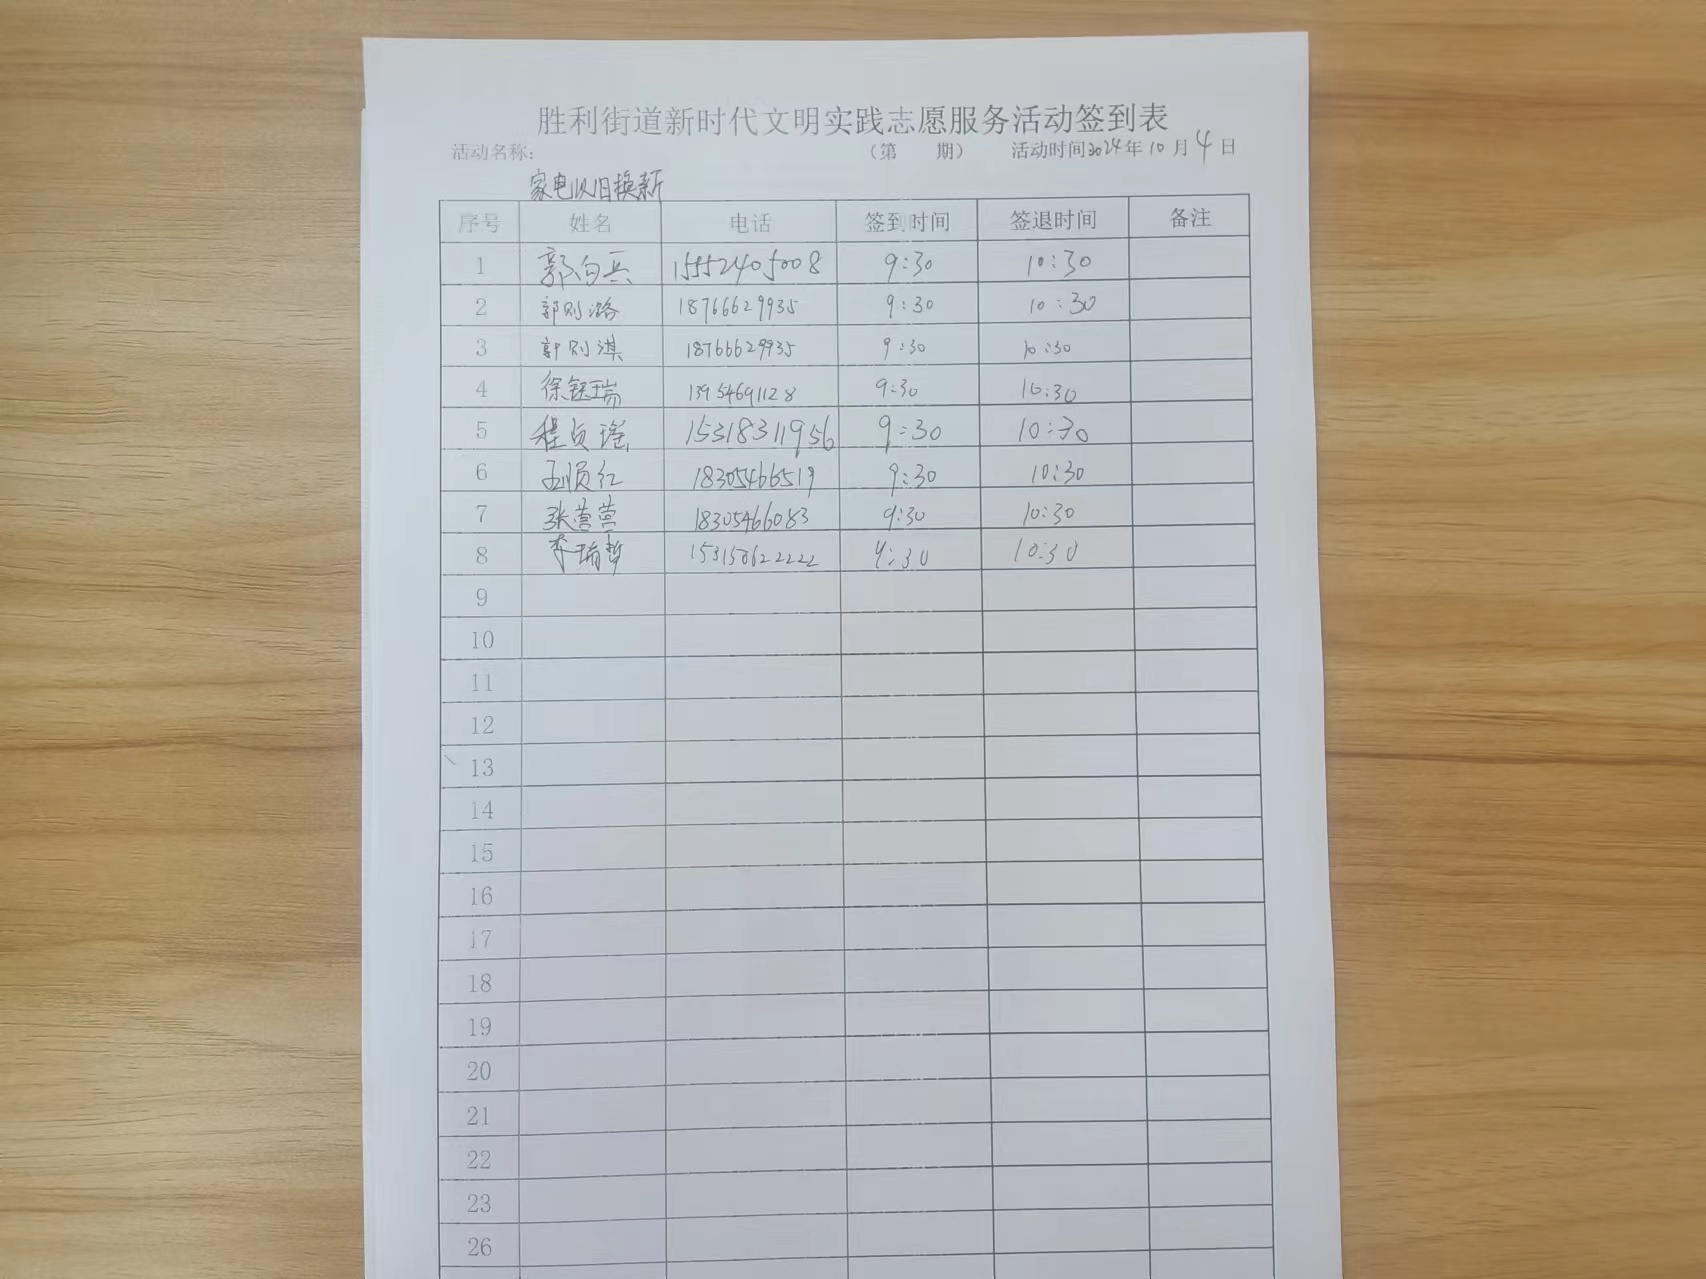 胜利街道新时代文明实践志愿服务活动签到表
活动名称: （第 期） 活动时间2024年10月4日
家电以旧换新
序号 姓名 电话 签到时间 签退时间 备注
1 郭向兵 15552405008 9:30 10:30
2 郭则潞 18766629935 9:30 10:30
3 郭则淇 18766629935 9:30 10:30
4 徐钰瑞 13954691128 9:30 10:30
5 程贞瑶 15318311956 9:30 10:30
6 孟顺红 18305466519 9:30 10:30
7 张营营 18305466083 9:30 10:30
8 李瑞哲 9:30 10:30
9
10
11
12
13
14
15
16
17
18
19
20
21
22
23
26